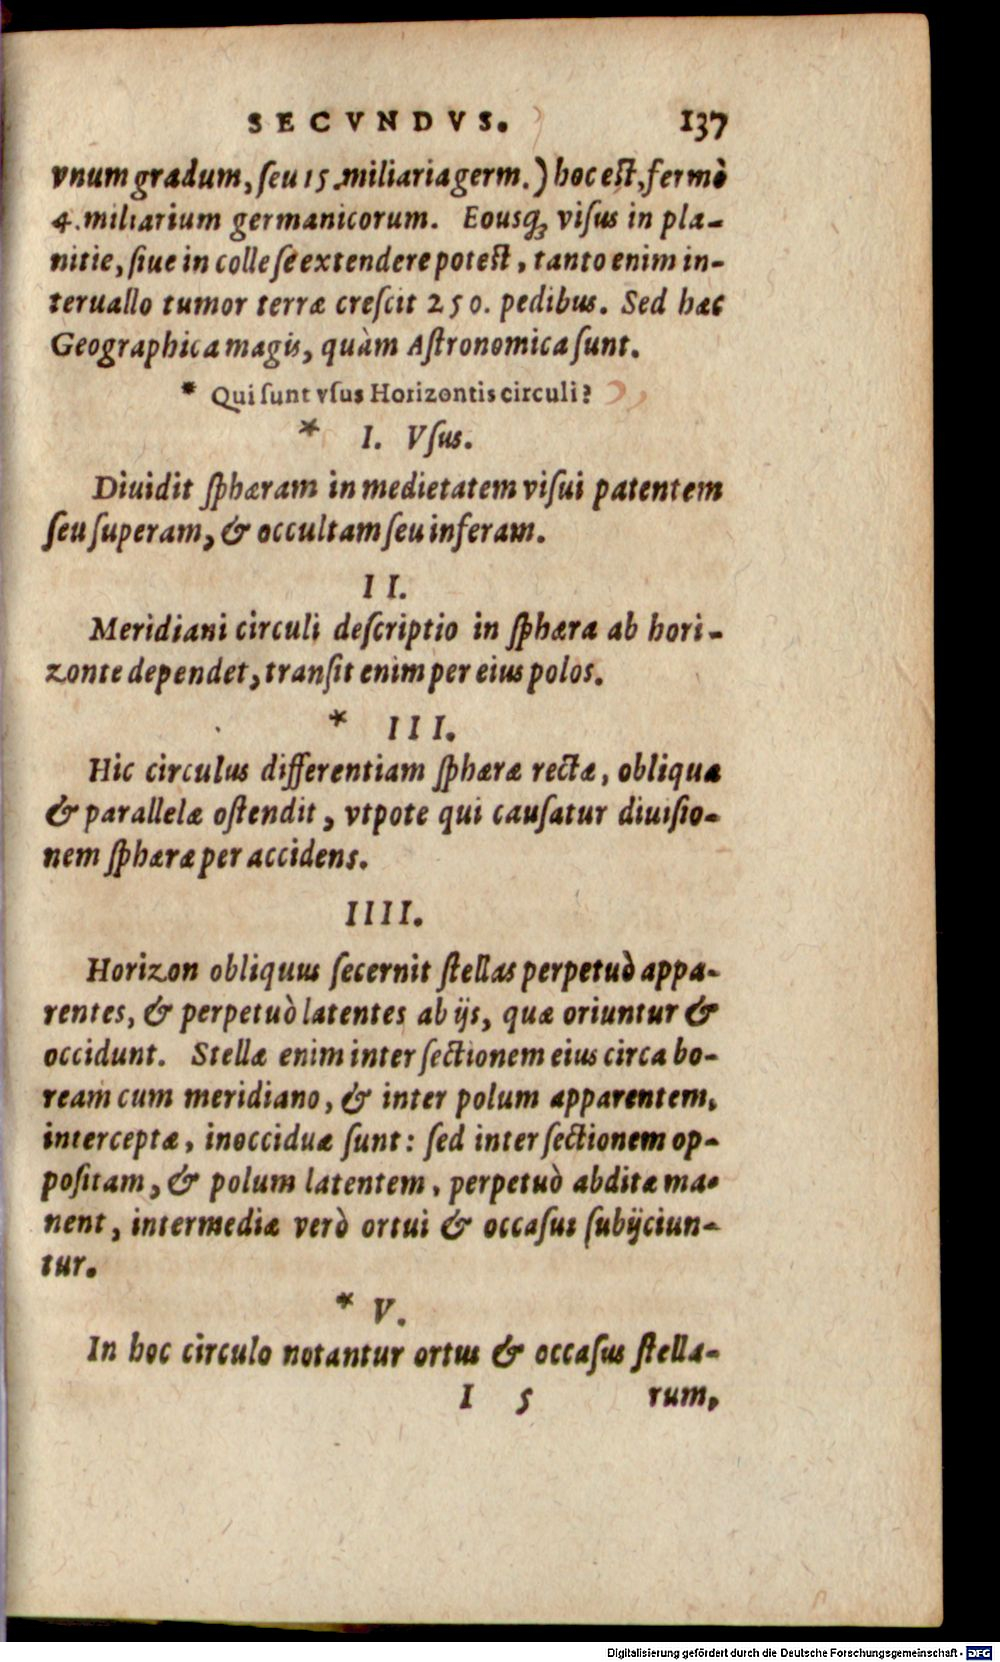 SECVNDVS. 137
vnum gradum, ſeu 15. miliaria germ.) hoc eſt, fermè
4. miliarium germanicorum. Eousq́; viſus in pla-
nitie, ſiue in colle ſe extendere poteſt, tanto enim in-
teruallo tumor terræ creſcit 250. pedibus. Sed hæc
Geographica magis, quàm Aſtronomica ſunt.
* Qui ſunt vſus Horizontis circuli?
* I. Vſus.
Diuidit ſphæram in medietatem viſui patentem
ſeu ſuperam, & occultam ſeu inferam.
II.
Meridiani circuli deſcriptio in ſphæra ab hori-
zonte dependet, tranſit enim per eius polos.
* III.
Hic circulus differentiam ſphæræ rectæ, obliquæ
& parallelæ oſtendit, vtpote qui cauſatur diuiſio-
nem ſphæræ per accidens.
IIII.
Horizon obliquus ſecernit ſtellas perpetuò appa-
rentes, & perpetuò latentes ab ijs, quæ oriuntur &
occidunt. Stellæ enim inter ſectionem eius circa bo-
ream cum meridiano, & inter polum apparentem,
interceptæ, inocciduæ ſunt: ſed inter ſectionem op-
poſitam, & polum latentem, perpetuò abditæ ma-
nent, intermediæ verò ortui & occaſui ſubijciun-
tur.
* V.
In hoc circulo notantur ortus & occaſus ſtella-
I 5 rum,
Digitalisierung gefördert durch die Deutsche Forschungsgemeinschaft - DFG